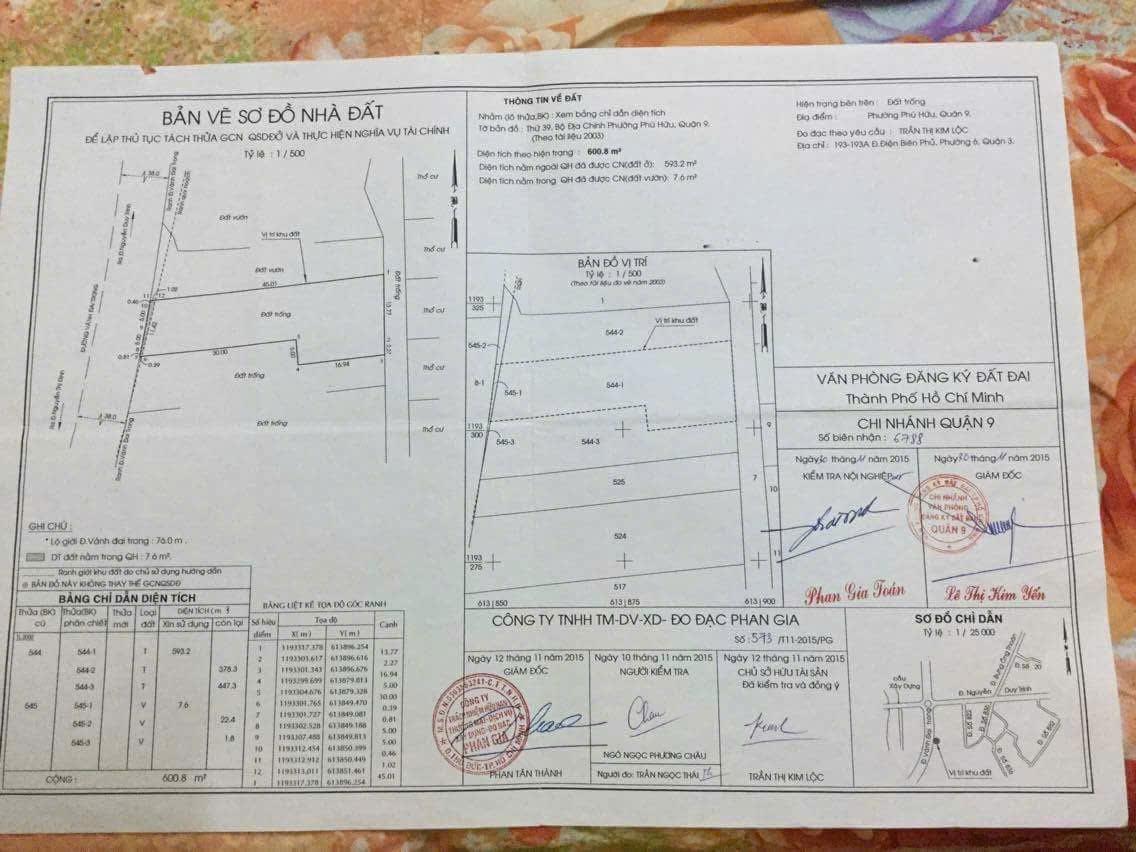 BẢN VẼ SƠ ĐỒ NHÀ ĐẤT
ĐỂ LẬP THỦ TỤC TÁCH THỬA GCN QSDĐỞ VÀ THỰC HIỆN NGHĨA VỤ TÀI CHÍNH
Tỷ lệ : 1 / 500
Thổ cư
Đất vườn
Vị trí khu đất
Thổ cư
Đất vườn
45.01
Đất trống
13.77
Đất trống
Thổ cư
30.00
5.00
16.94
2.27
Đất trống
Thổ cư
Đất trống
Thổ cư
Rạ.Đ.Nguyễn Duy Trinh
ĐƯỜNG VÀNH ĐAI TRONG
Rạ.Đ.Nguyễn Thị Định
Ranh Đ.Vành Đai Trong
GHI CHÚ :
* Lộ giới Đ.Vành đai trong : 76.0 m .
DT đất nằm trong QH : 7.6 m².
Ranh giới khu đất do chủ sử dụng hướng dẫn
BẢN ĐỒ NÀY KHÔNG THAY THẾ GCNQSDĐ
BẢNG CHỈ DẪN DIỆN TÍCH
Thửa (BK) cũ Thửa(BK) phân chiết Thửa mới Loại đất DIỆN TÍCH ( m²)
Xin sử dụng còn lại
544 544-1 T 593.2
544-2 T 378.3
544-3 T 447.3
545 545-1 V 7.6
545-2 V 22.4
545-3 V 1.8
CỘNG : 600.8 m²
BẢNG LIỆT KÊ TỌA ĐỘ GÓC RANH
Số hiệu điểm Tọa độ Cạnh
X( m ) Y( m )
1 1193317.378 613896.254
13.77
2 1193303.617 613896.616
2.27
3 1193301.343 613896.676
16.94
4 1193299.699 613879.813
5.00
5 1193304.676 613879.328
30.00
6 1193301.765 613849.470
0.39
7 1193301.727 613849.081
0.81
8 1193302.528 613849.188
5.00
9 1193307.488 613849.813
5.00
10 1193312.454 613850.399
0.46
11 1193312.912 613850.449
1.02
12 1193313.011 613851.461
45.01
1 1193317.378 613896.254
THÔNG TIN VỀ ĐẤT
Nhằm (lô thửa,BK) : Xem bảng chỉ dẫn diện tích
Tờ bản đồ : Thứ 39, Bộ Địa Chính Phường Phú Hữu, Quận 9.
(Theo tài liệu 2003)
Diện tích theo hiện trạng : 600.8 m²
Diện tích nằm ngoài QH đã được CN(đất ở): 593.2 m²
Diện tích nằm trong QH đã được CN(đất vườn): 7.6 m²
Hiện trạng bên trên : Đất trống
Địa điểm : Phường Phú Hữu, Quận 9.
Đo đạc theo yêu cầu : TRẦN THỊ KIM LỘC
Địa chỉ : 193-193A Đ.Điện Biên Phủ, Phường 6, Quận 3.
BẢN ĐỒ VỊ TRÍ
Tỷ lệ : 1 / 500
(Theo tài liệu đo vẽ năm 2003)
1193
325
1
544-2
Vị trí khu đất
545-2
8-1
545-1
544-1
1193
300
545-3
544-3
9
525
7
10
524
1193
275
11
517
613 | 850
613 | 875
613 | 900
VĂN PHÒNG ĐĂNG KÝ ĐẤT ĐAI
Thành Phố Hồ Chí Minh
CHI NHÁNH QUẬN 9
Số biên nhận : 6788
Ngày 30 tháng 11 năm 2015
KIỂM TRA NỘI NGHIỆP
Phan Gia Toán
Ngày 30 tháng 11 năm 2015
GIÁM ĐỐC
CHI NHÁNH
VĂN PHÒNG
ĐĂNG KÝ ĐẤT ĐAI
QUẬN 9
Lê Thị Kim Yến
CÔNG TY TNHH TM-DV-XD- ĐO ĐẠC PHAN GIA
Số :573 /T11-2015/PG
Ngày 12 tháng 11 năm 2015
GIÁM ĐỐC
CÔNG TY
TRÁCH NHIỆM HỮU HẠN
THƯƠNG MẠI-DỊCH VỤ
XÂY DỰNG-ĐO ĐẠC
PHAN GIA
PHAN TẤN THÀNH
Ngày 10 tháng 11 năm 2015
NGƯỜI KIỂM TRA
NGÔ NGỌC PHƯƠNG CHÂU
Người đo: TRẦN NGỌC THÁI
Ngày 12 tháng 11 năm 2015
CHỦ SỞ HỮU TÀI SẢN
Đã kiểm tra và đồng ý
TRẦN THỊ KIM LỘC
SƠ ĐỒ CHỈ DẪN
Tỷ lệ : 1 / 25 000
Đ. Bưng Ông Thoàn
Đ. Số 20
cầu
Xây Dựng
Đ. Nguyễn Duy Trinh
Đ.Vành Đai Trong
Đ. Số 822
Đ. Số 882
Vị trí khu đất